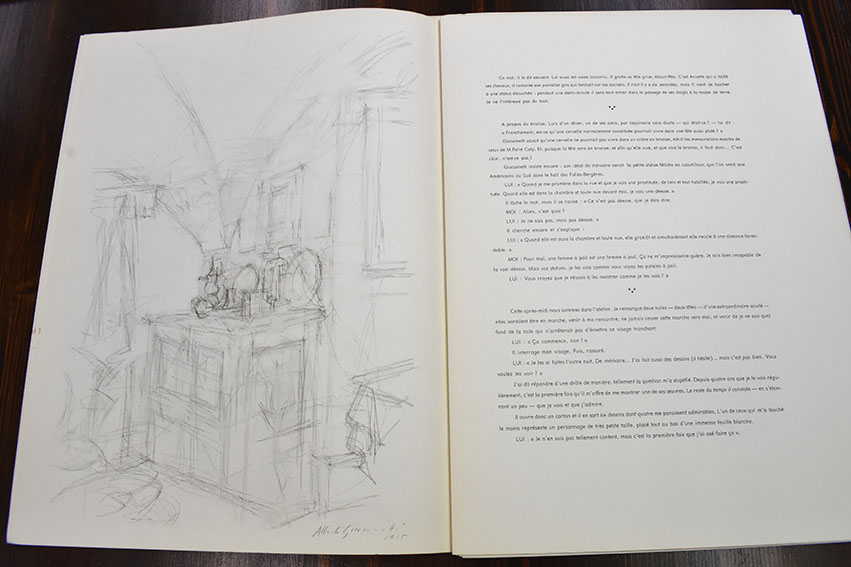 Alberto Giacometti
Ce mot, il le dit souvent. Lui aussi est assez inconnu. Il gratte sa tête grise, ébouriffée. C'est Annette qui a taillé
ses cheveux. Il remonte son pantalon gris qui tombait sur ses souliers. Il riait il y a six secondes, mais il vient de toucher
à une statue ébauchée : pendant une demi-minute il sera tout entier dans le passage de ses doigts à la masse de terre.
Je ne l'intéresse pas du tout.
A propos du bronze. Lors d'un dîner, un de ses amis, par taquinerie sans doute — qui était-ce ? — lui dit :
« Franchement, est-ce qu'une cervelle normalement constituée pourrait vivre dans une tête aussi plate ? »
Giacometti savait qu'une cervelle ne pourrait pas vivre dans un crâne en bronze, eût-il les mensurations exactes de
celui de M. René Coty. Et, puisque la tête sera en bronze, et afin qu'elle vive, et que vive le bronze, il faut donc... C'est
clair, n'est-ce pas ?
Giacometti insiste encore : son idéal de statuaire serait la petite statue fétiche en caoutchouc que l'on vend aux
Américains du Sud dans le hall des Folies-Bergères.
LUI : « Quand je me promène dans la rue et que je vois une prostituée, de loin et tout habillée, je vois une prosti-
tuée. Quand elle est dans la chambre et toute nue devant moi, je vois une déesse. »
Il lâche le mot, mais il se ravise : « Ce n'est pas déesse, que je dois dire.
MOI : Alors, c'est quoi ?
LUI : Je ne sais pas, mais pas déesse. »
Il cherche encore et s'explique :
LUI : « Quand elle est dans la chambre et toute nue, elle grandit et simultanément elle recule à une distance formi-
dable. »
MOI : Pour moi, une femme à poil est une femme à poil. Ça ne m'impressionne guère. Je suis bien incapable de
la voir déesse. Mais vos statues, je les vois comme vous voyez les putains à poil.
LUI : Vous croyez que je réussis à les montrer comme je les vois ? »
Cette après-midi nous sommes dans l'atelier. Je remarque deux toiles — deux têtes — d'une extraordinaire acuité —
elles semblent être en marche, venir à ma rencontre, ne jamais cesser cette marche vers moi, et venir de je ne sais quel
fond de la toile qui n'arrêterait pas d'émettre ce visage tranchant.
LUI : « Ça commence, non ? »
Il interroge mon visage. Puis, rassuré.
LUI : « Je les ai faites l'autre nuit. De mémoire... J'ai fait aussi des dessins (il hésite)... mais c'est pas bien. Vous
voulez les voir ? »
J'ai dû répondre d'une drôle de manière, tellement la question m'a stupéfié. Depuis quatre ans que je le vois régu-
lièrement, c'est la première fois qu'il m'offre de me montrer une de ses œuvres. Le reste du temps il constate — en s'éton-
nant un peu — que je vois et que j'admire.
Il ouvre donc un carton et il en sort six dessins dont quatre me paraissent admirables. L'un de ceux qui m'a touché
le moins représente un personnage de très petite taille, placé tout au bas d'une immense feuille blanche.
LUI : « Je n'en suis pas tellement content, mais c'est la première fois que j'ai osé faire ça ».